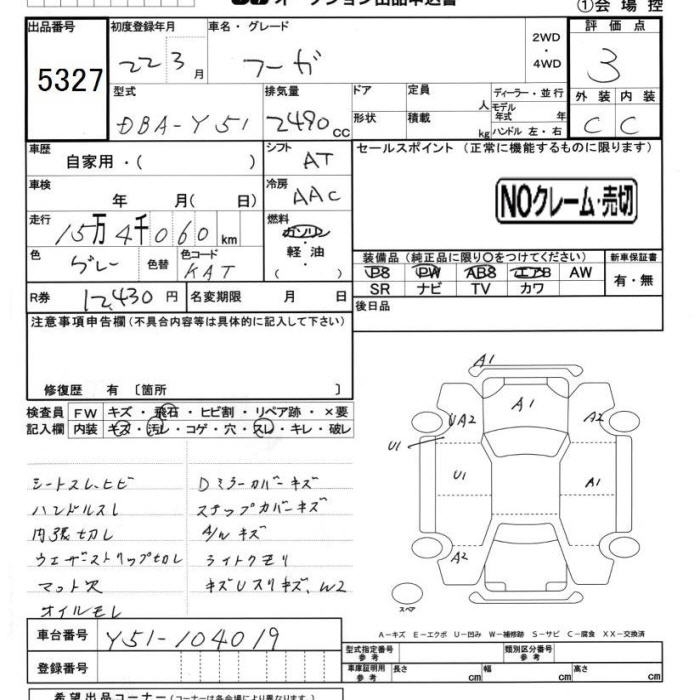 オークション出品申込書
①会場控
出品番号 5327
初度登録年月 22 3月
車名・グレード フーガ
2WD・4WD
評価点 3
型式 DBA-Y51
排気量 2490cc
ドア 形状
定員 人
積載 kg
ディーラー・並行
モデル年式 年
ハンドル 左・右
外装 内装
C C
車歴 自家用・( )
シフト AT
セールスポイント (正常に機能するものに限ります)
NOクレーム・売切
車検 年 月( 日)
冷房 AAC
走行 15万4千060km
燃料 ガソリン 軽油 ( )
色 グレー 色替
色コード KAT
装備品 (純正品に限り○をつけてください)
PS PW ABS エアB AW
SR ナビ TV カワ
新車保証書 有・無
R券 12,430円
名変期限 月 日
後日品
注意事項申告欄(不具合内容等は具体的に記入して下さい)
修復歴 有〔箇所 〕
検査員記入欄
FW キズ・飛石・ヒビ割・リペア跡・×要
内装 キズ・汚レ・コゲ・穴・スレ・キレ・破レ
シートスレ、ヒビ
ハンドルスレ
内張切レ
ウェザーストリップ切レ
マット穴
オイルモレ
Dミラーカバーキズ
ステップカバーキズ
A/Wキズ
ライトクモリ
キズUスリキズ、W2
A1
A1
UA2
A2
U1
U1
A1
A2
スペア
A-キズ E-エクボ U-凹み W-補修跡 S-サビ C-腐食 XX-交換済
車台番号 Y51-104019
登録番号
型式指定番号 参考
類別区分番号 参考
車庫証明用 参考 長さ cm 幅 cm 高さ cm
希望出品コーナー(コーナーは各会場により異なります)